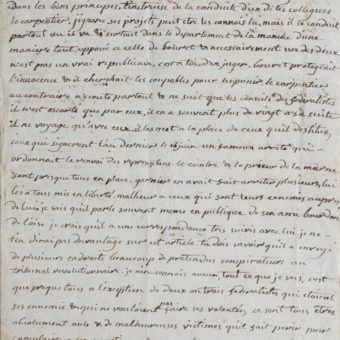 dans les bons principes, t'instruise de la conduite d'un de tes collegues
le carpentier, j'ignore ses projets peut etre les connois tu, mais il se conduit
partout ou il va & surtout dans le departement de la manche d'une
maniere tout opposé a celle de bouret & necessairement un des deux
n'est pas un vrai republicain, c'est a toi d'en juger, bouret protegeoit
l'innocence & il cherchoit les coupables pour les punir le carpentier
au contraire n'ecoute partout & ne suit que les conseils des federalistes
il n'est escorté que par eux, il en a souvent plus de vingt a sa suite
il ne voyage qu'avec eux, il les met a la place de ceux qu'il destitue,
ceux qui signerent l'an dernier le juin un fameux arreté qui
ordonnait le renvoi des représentans le cointre & prieur de la marne
sont presque tous en place, garnier en avait fait arreter plusieurs, lui
les a tous mis en liberté malheur a ceux qui sont leurs ennemis aupres
de lui, je vais qu'il parle souvent meme en publique de son ami bourdon
de l'oise je crois qu'il a une correspondance tres suivie avec lui, je ne
t'en dirai pas davantage sur cet article, tu dois savoir qu'il a envoyé
de plusieurs endroits beaucoup de pretendus conspirateurs au
tribunal revolutionaire. je ai avant tout ce que je sais, c'est
que presque tous a l'exception de deux ou trois federalistes qui etoient
ses ennemis & qui ne vouloient pas faire ses volontés, ce sont tous etres
absolument nuls & de malheureuses victimes qu'il fait punir pour